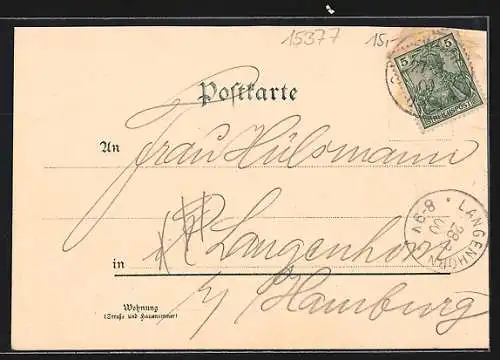 15377 15,-
5 5
REICHSPOST
Postkarte
An Frau Hülsmann
in Langenhorn
b/ Hamburg
Wohnung
(Straße und Hausnummer)
LANGENHORN
28 2
00
8-9V